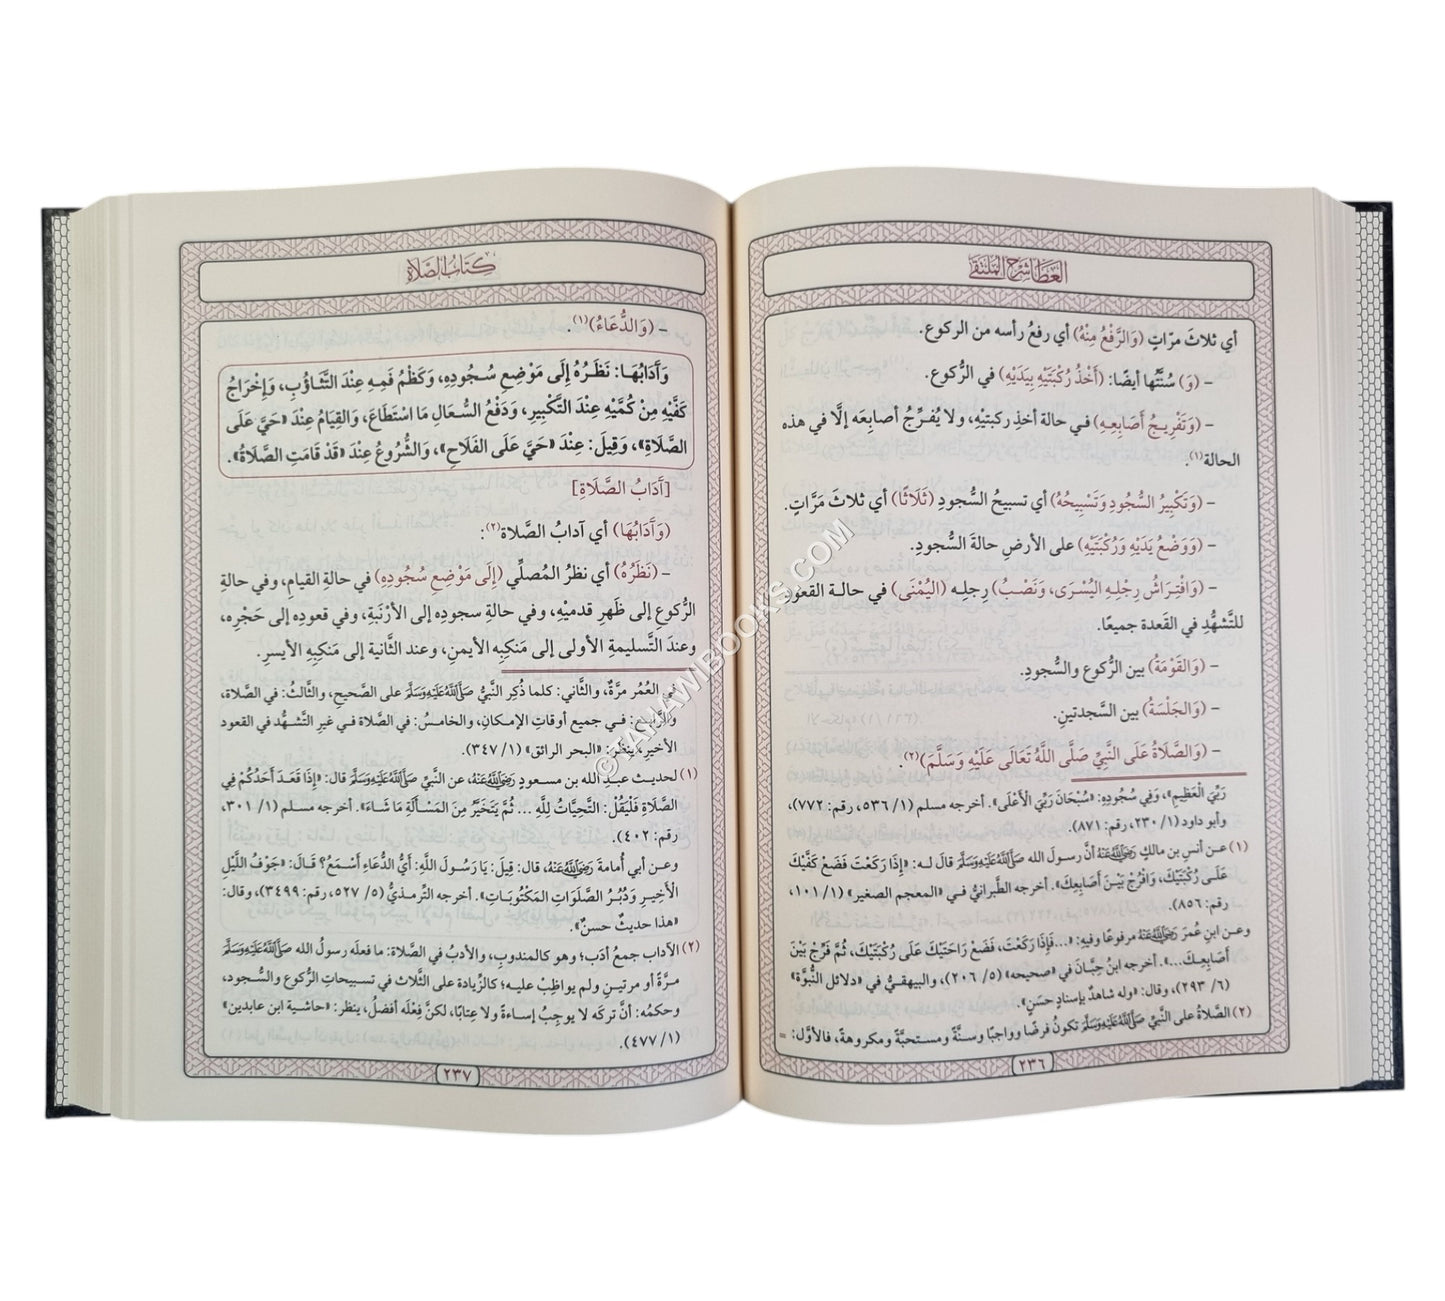 العطا شرح الملتقى
أي ثلاثَ مرّاتٍ (وَالرَّفْعُ مِنْهُ) أي رفعُ رأسه من الركوع.
- (وَ) سُنَّتُها أيضًا: (أَخْذُ رُكْبَتَيْهِ بِيَدَيْهِ) في الرُّكوع.
- (وَتَفْرِيجُ أَصَابِعِهِ) في حالة أخذِ ركبتيْهِ، ولا يُفرِّجُ أصابِعَه إلَّا في هذه
الحالة(١).
- (وَتَكْبِيرُ السُّجُودِ وَتَسْبِيحُهُ) أي تسبيحُ السُّجودِ (ثَلَاثًا) أي ثلاثَ مَرَّاتٍ.
- (وَوَضْعُ يَدَيْهِ وَرُكْبَتَيْهِ) على الأرضِ حالةَ السُّجودِ.
- (وَافْتِرَاشُ رِجْلِهِ اليُسْرَى، وَنَصْبُ) رِجلِه (اليُمْنَى) في حالة القعودِ
للتَّشهُّدِ في القَعدة جميعًا.
- (وَالقَوْمَةُ) بين الرُّكوع والسُّجودِ.
- (وَالجَلْسَةُ) بين السَّجدتينِ.
- (وَالصَّلَاةُ عَلَى النَّبِيِّ صَلَّى اللَّهُ تَعَالَى عَلَيْهِ وَسَلَّمَ)(٢).
رَبِّيَ الْعَظِيمِ»، وَفِي سُجُودِهِ: «سُبْحَانَ رَبِّيَ الْأَعْلَى». أخرجه مسلم (١/ ٥٣٦، رقم: ٧٧٢)،
وأبو داود (١/ ٢٣٠، رقم: ٨٧١).
(١) عن أنسِ بن مالكٍ رَضِيَ اللَّهُ عَنْهُ أنَّ رسولَ الله صَلَّى اللَّهُ عَلَيْهِ وَسَلَّمَ قالَ له: «إِذَا رَكَعْتَ فَضَعْ كَفَّيْكَ
عَلَى رُكْبَتَيْكَ، وَافْرُجْ بَيْنَ أَصَابِعِكَ». أخرجه الطَّبرانيُّ في «المعجم الصغير» (١/ ١٠١،
رقم: ٨٥٦).
وعن ابنِ عُمرَ رَضِيَ اللَّهُ عَنْهُ مرفوعًا وفيهِ: «...فَإِذَا رَكَعْتَ، فَضَعْ رَاحَتَيْكَ عَلَى رُكْبَتَيْكَ، ثُمَّ فَرِّجْ بَيْنَ
أَصَابِعِكَ...». أخرجه ابنُ حِبَّانَ في «صحيحه» (٥/ ٢٠٦)، والبيهقيُّ في «دلائل النُّبوَّة»
(٦/ ٢٩٣)، وقال: «وله شاهدٌ بإسنادٍ حسَنٍ».
(٢) الصَّلاةُ على النَّبيِّ صَلَّى اللَّهُ عَلَيْهِ وَسَلَّمَ تكونُ فرضًا وواجبًا وسنَّةً ومستحبَّةً ومكروهةً، فالأوَّل: =
٢٣٦
كتاب الصلاة
- (وَالدُّعَاءُ)(١).
وَآدَابُهَا: نَظَرُهُ إِلَى مَوْضِعِ سُجُودِهِ، وَكَظْمُ فَمِهِ عِنْدَ التَّثَاؤُبِ، وَإِخْرَاجُ
كَفَّيْهِ مِنْ كُمَّيْهِ عِنْدَ التَّكْبِيرِ، وَدَفْعُ السُّعَالِ مَا اسْتَطَاعَ، وَالقِيَامُ عِنْدَ «حَيَّ عَلَى
الصَّلَاةِ»، وَقِيلَ: عِنْدَ «حَيَّ عَلَى الفَلَاحِ»، وَالشُّرُوعُ عِنْدَ «قَدْ قَامَتِ الصَّلَاةُ».
[آدَابُ الصَّلَاةِ]
(وَآدَابُهَا) أي آدابُ الصَّلاة(٢):
- (نَظَرُهُ) أي نظرُ المُصلِّي (إِلَى مَوْضِعِ سُجُودِهِ) في حالةِ القيامِ، وفي حالةِ
الرُّكوع إلى ظَهرِ قدميْهِ، وفي حالةِ سجودِه إلى الأرْنَبَةِ، وفي قعودِه إلى حَجْرِه،
وعندَ التَّسليمةِ الأولى إلى مَنكِبِه الأيمنِ، وعند الثَّانية إلى مَنكِبِه الأيسرِ.
في العُمُر مرَّةٌ، والثَّاني: كلما ذُكِر النَّبيُّ صَلَّى اللَّهُ عَلَيْهِ وَسَلَّمَ على الصَّحيحِ، والثَّالثُ: في الصَّلاة،
والرَّابعُ: في جميع أوقاتِ الإمكانِ، والخامسُ: في الصَّلاة في غيرِ التَّشهُّد في القعود
الأخيرِ، ينظر: «البحر الرائق» (١/ ٣٤٧).
(١) لحديث عبدِ الله بن مسعودٍ رَضِيَ اللَّهُ عَنْهُ، عن النَّبيِّ صَلَّى اللَّهُ عَلَيْهِ وَسَلَّمَ قال: «إِذَا قَعَدَ أَحَدُكُمْ فِي
الصَّلَاةِ فَلْيَقُلْ: التَّحِيَّاتُ لِلَّهِ ... ثُمَّ يَتَخَيَّرُ مِنَ المَسْأَلَةِ مَا شَاءَ». أخرجه مسلم (١/ ٣٠١،
رقم: ٤٠٢).
وعن أبي أُمامةَ رَضِيَ اللَّهُ عَنْهُ، قال: قِيلَ: يَا رَسُولَ اللَّهِ: أَيُّ الدُّعَاءِ أَسْمَعُ؟ قَالَ: «جَوْفُ اللَّيْلِ
الْأَخِيرِ وَدُبُرُ الصَّلَوَاتِ المَكْتُوبَاتِ». أخرجه التِّرمذيُّ (٥/ ٥٢٧، رقم: ٣٤٩٩)، وقال:
«هذا حديثٌ حسنٌ».
(٢) الآداب جمعُ أدَب؛ وهو كالمندوبِ، والأدبُ في الصَّلاة: ما فعلَه رسولُ الله صَلَّى اللَّهُ عَلَيْهِ وَسَلَّمَ
مرَّةً أو مرتينِ ولم يواظِبْ عليه؛ كالزِّيادة على الثَّلاث في تسبيحاتِ الرُّكوع والسُّجود،
وحكمُه: أنَّ تركَه لا يوجِبُ إساءةً ولا عِتابًا، لكنَّ فِعْلَه أفضلُ، ينظر: «حاشية ابن عابدين»
(١/ ٤٧٧).
٢٣٧
©TAHAWIBOOKS.COM